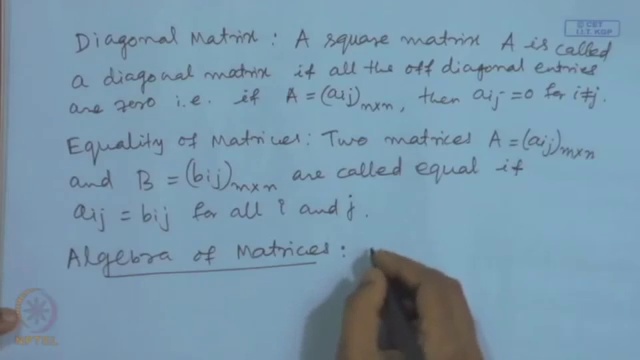 © CET
I.I.T. KGP
Diagonal Matrix : A square matrix A is called
a diagonal matrix if all the off diagonal entries
are zero i.e. if A = (aij)n×n, then aij = 0 for i≠j.
Equality of Matrices: Two matrices A = (aij)m×n
and B = (bij)m×n are called equal if
aij = bij for all i and j.
Algebra of Matrices :
NPTEL